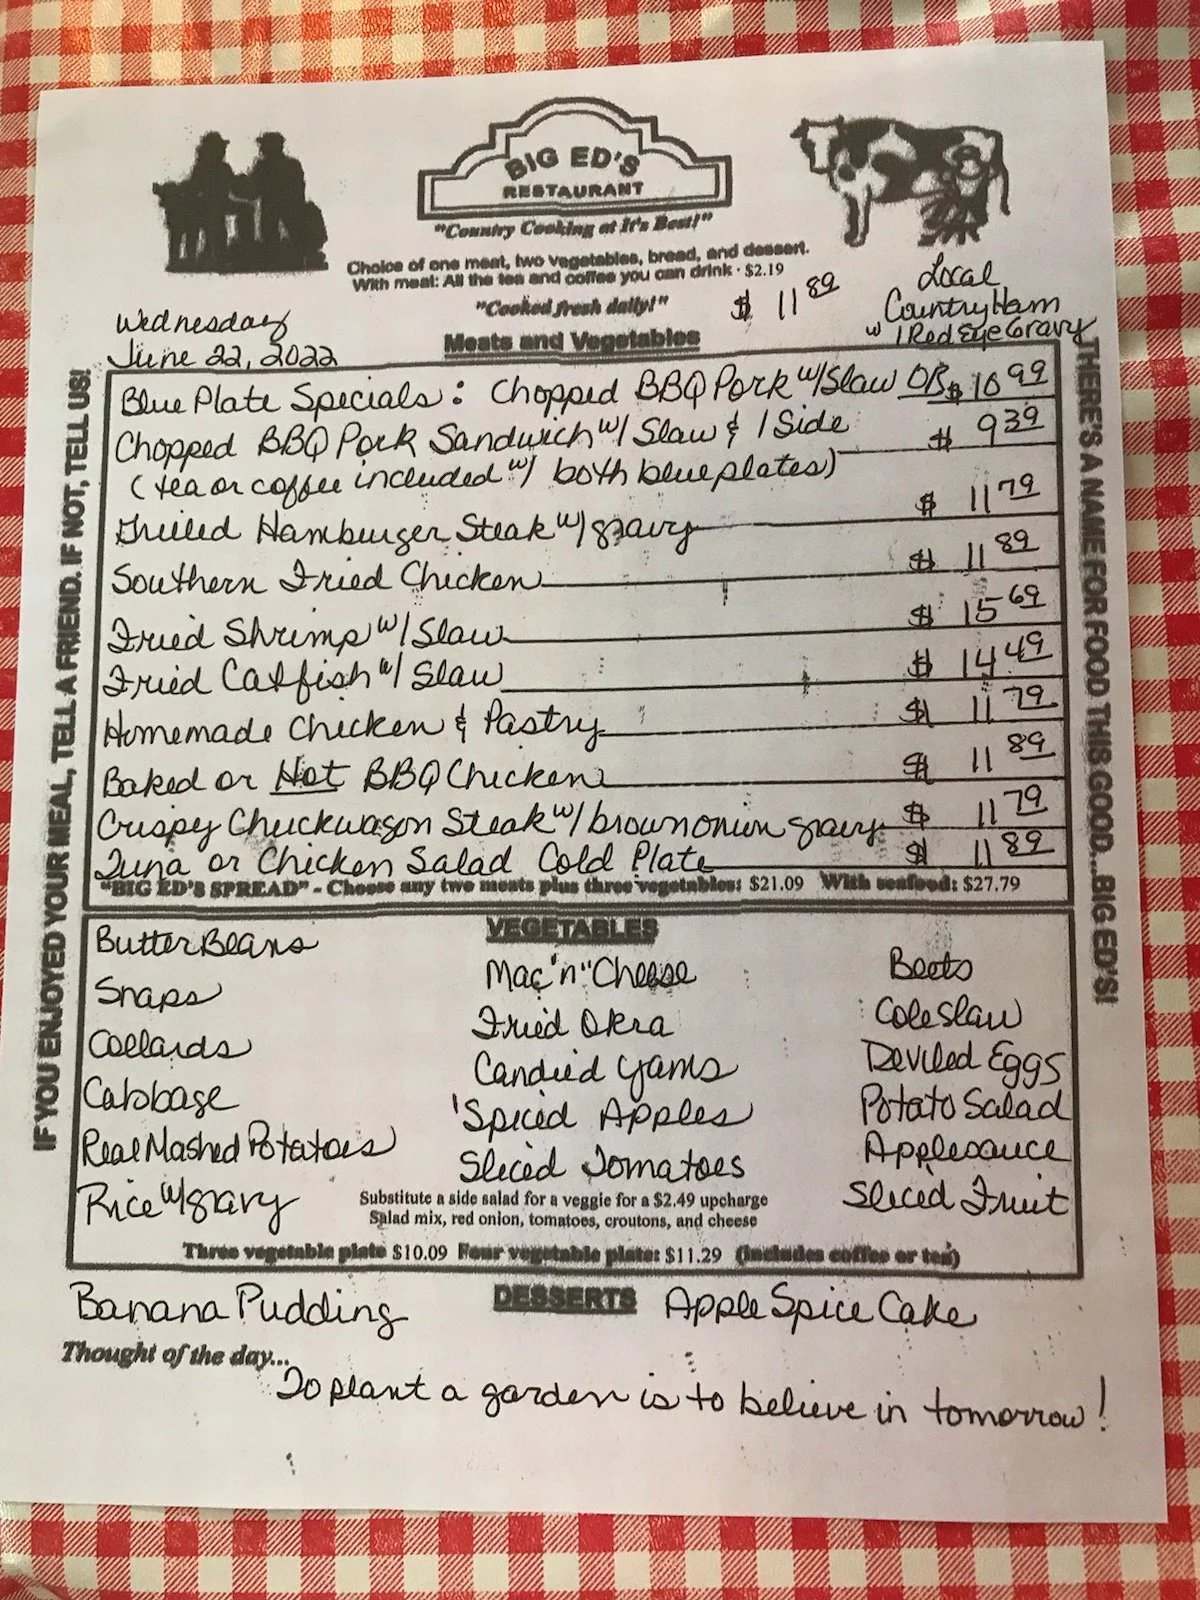 BIG ED'S
RESTAURANT
"Country Cooking at It's Best!"
Choice of one meat, two vegetables, bread, and dessert.
With meat: All the tea and coffee you can drink · $2.19
"Cooked fresh daily!"
$ 11 89
Local
Country Ham
w/ Red Eye Gravy
Wednesday
June 22, 2022
Meats and Vegetables
Blue Plate Specials: Chopped BBQ Pork w/Slaw OR $ 10 99
Chopped BBQ Pork Sandwich w/ Slaw & 1 Side $ 9 39
(tea or coffee included w/ both blue plates)
Grilled Hamburger Steak w/gravy $ 11 79
Southern Fried Chicken $ 11 89
Fried Shrimp w/Slaw $ 15 69
Fried Catfish w/ Slaw $ 14 49
Homemade Chicken & Pastry $ 11 79
Baked or Hot BBQ Chicken $ 11 89
Crispy Chuckwagon Steak w/ brown onion gravy $ 11 79
Tuna or Chicken Salad Cold Plate $ 11 89
"BIG ED'S SPREAD" - Choose any two meats plus three vegetables: $21.09 With seafood: $27.79
IF YOU ENJOYED YOUR MEAL, TELL A FRIEND. IF NOT, TELL US!
THERE'S A NAME FOR FOOD THIS GOOD...BIG ED'S!
VEGETABLES
Butter Beans
Snaps
Collards
Cabbage
Real Mashed Potatoes
Rice w/gravy
Mac "n" Cheese
Fried Okra
Candied Yams
Spiced Apples
Sliced Tomatoes
Beets
Coleslaw
Deviled Eggs
Potato Salad
Applesauce
Sliced Fruit
Substitute a side salad for a veggie for a $2.49 upcharge
Salad mix, red onion, tomatoes, croutons, and cheese
Three vegetable plate $10.09 Four vegetable plate: $11.29 (includes coffee or tea)
DESSERTS
Banana Pudding
Apple Spice Cake
Thought of the day...
To plant a garden is to believe in tomorrow!